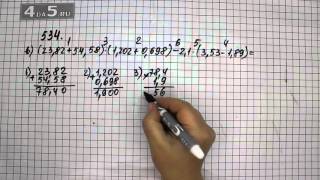 4DS.RU
534.
1 3 2 6 5 4
б) (23,82+54,58)·(1,202+0,698)-2,1·(3,53-1,89)=
1) +23,82 2) +1,202 3) ×78,4
54,58 0,698 1,9
78,40 1,900 56